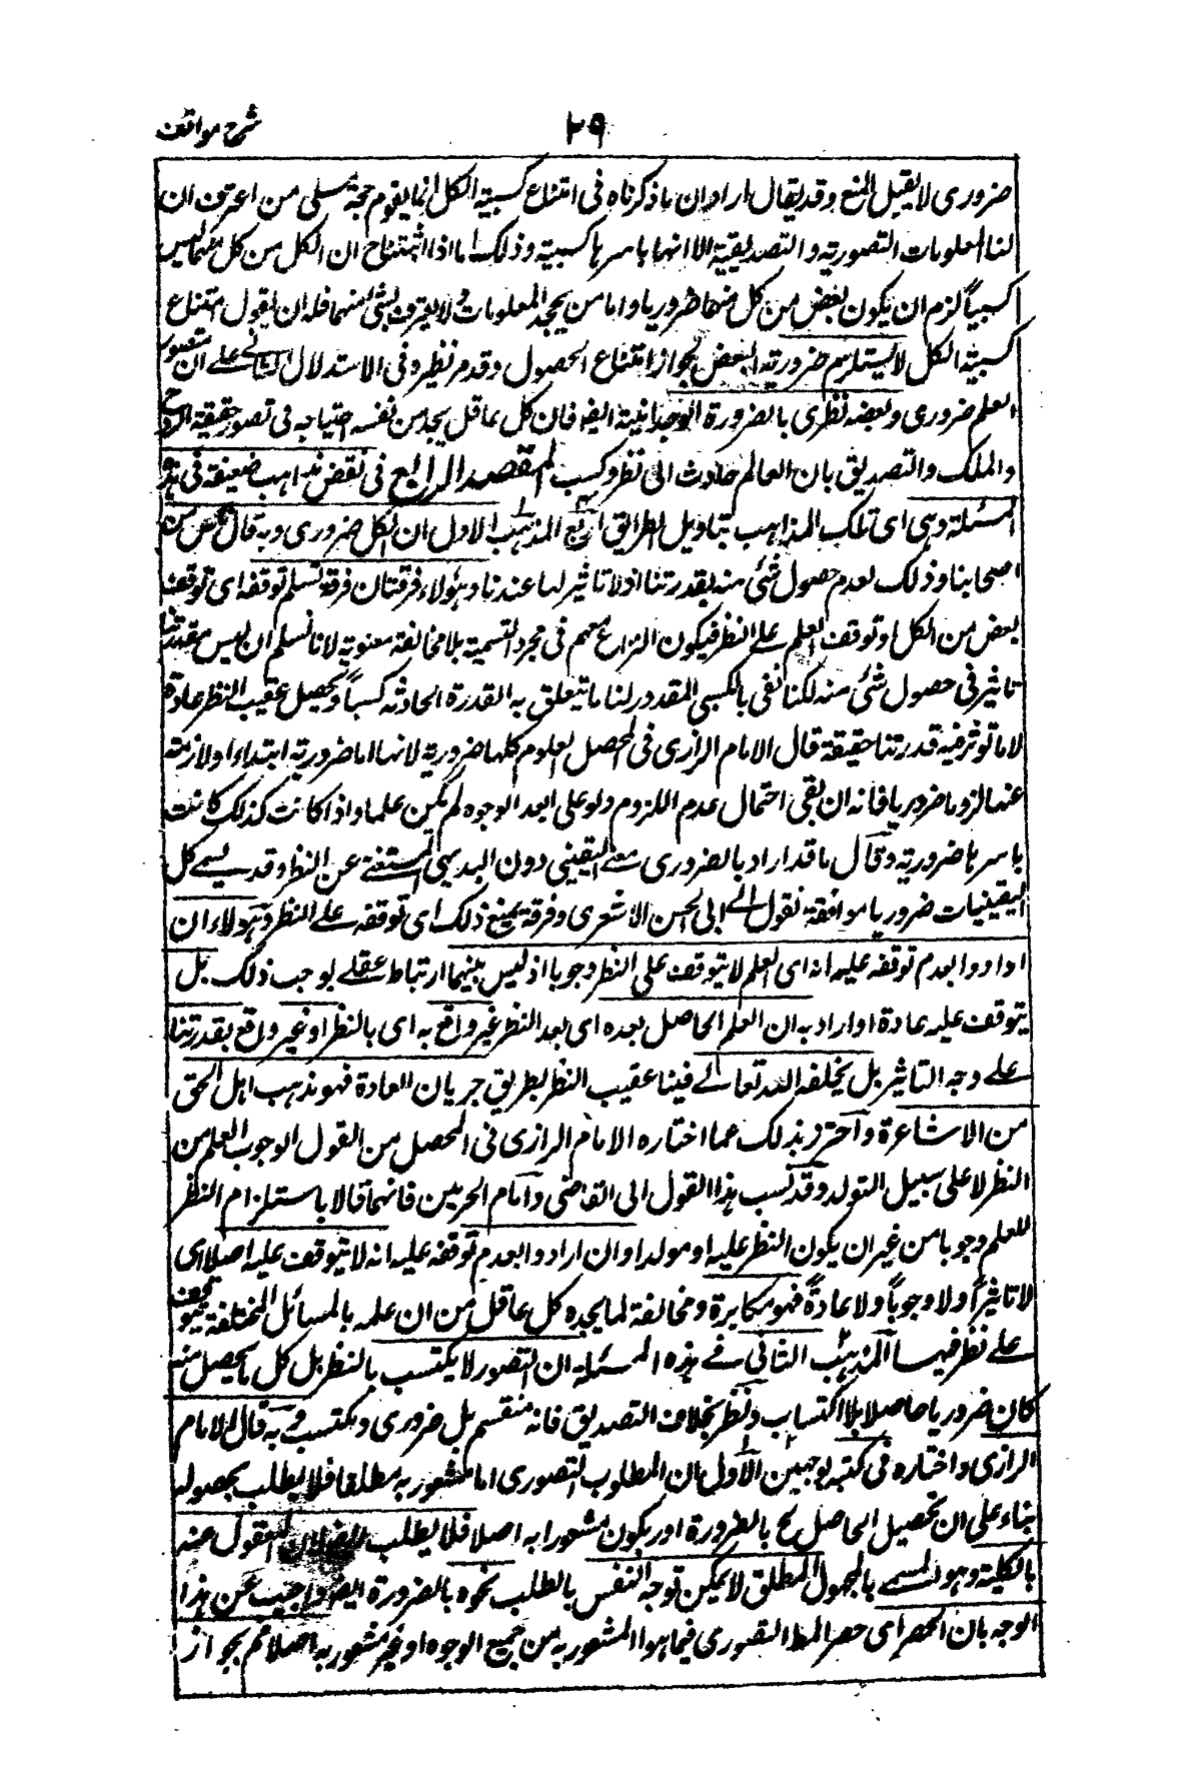 شرح مواقف
٢٩
ضروری لا یقبل المنع وقد یقال اراد ان ما ذکرناه فی امتناع کسبیة الکل انما یقوم حجة علی من اعترف ان
لنا معلومات التصوریة و التصدیقیة الا انها باسرها کسبیة وذلک اما اذا ان الکل من کل منهما لیس
کسبیاً لزم ان یکون بعض من کل منهما ضروریا واما من یجحد المعلومات ولا یعترف بشئ منهما فله ان یقول امتناع
کسبیة الکل لا یستلزم ضروریة البعض لجواز امتناع الحصول وقد مر نظیره فی الاستدلال الثانی علی ان
العلم ضروری وبعضه نظری بالضرورة الوجدانیة ایضا فان کل عاقل یجد من نفسه احتیاجه فی تصور حقیقة الروح
والملک والتصدیق بان العالم حادث الی نظر وکسب المقصد الرابع فی نقض مذاهب ضعیفة فی هذه
المسئلة وهی ای تلک المذاهب بتاویل الطرایق اربع المذهب الاول ان الکل ضروری وبه قال بعض من
اصحابنا وذلک لعدم حصول شئ منه بقدرتنا اذ لا تاثیر لها عندنا وهؤلاء فرقتان فرقة تسلم توقفه ای توقف
بعض من الکل او توقف العلم علی النظر فیکون النزاع معهم فی مجرد التسمیة بلا مخالفة معنویة لانا نسلم ان لیس لقدرتنا
تاثیر فی حصول شئ منه لکنا نعنی بالکسبی المقدور لنا ما یتعلق به القدرة الحادثة کسباً ویحصل عقیب النظر عادة
لا ما تؤثر فیه قدرتنا حقیقة قال الامام الرازی فی المحصل العلوم کلها ضروریة لانها اما ضروریة ابتداء او لازمة
عنها لزوما ضروریا فانه ان بقی احتمال عدم اللزوم ولو علی ابعد الوجوه لم یکن علما واذا کانت کذلک کانت
باسرها ضروریة وقال ناقده اراد بالضروری معنی الیقینی دون البدیهی المستغنی عن النظر وقد یسمی کل
الیقینیات ضروریا موافقة لقول ابی الحسن الاشعری وفرقة یمنع ذلک ای توقفه علی النظر وهؤلاء ان
ارادوا بعدم توقفه علیه انه ای العلم لا یتوقف علی النظر وجوبا اذ لیس بینهما ارتباط عقلی یوجب ذلک بل
یتوقف علیه عادة او اراد به ان العلم الحاصل بعده ای بعد النظر غیر واقع به ای بالنظر او غیر واقع بقدرتنا
علی وجه التاثیر بل یخلقه الله تعالی فینا عقیب النظر بطریق جریان العادة فهو مذهب اهل الحق
من الاشاعرة واحترز بذلک عما اختاره الامام الرازی فی المحصل من القول الوجوب العلم من
النظر لا علی سبیل التولد وقد نسب هذا القول الی القاضی وامام الحرمین فانهما قالا باستلزام النظر
للعلم وجوبا من غیر ان یکون النظر علیه او مولدا وان ارادوا بعدم توقفه علیه انه لا یتوقف علیه اصلا ای
لا تاثیراً ولا وجوباً ولا عادةً فهو مکابرة ومخالفة لما یجده کل عاقل من ان علمه بالمسائل المختلفة یتوقف
علی نظر فیها المذهب الثانی فی هذه المسئلة ان التصور لا یکتسب بالنظر بل کل ما یحصل منه
کان ضروریا حاصلا بلا اکتساب ونظر بخلاف التصدیق فانه منقسم بل ضروری ومکتسب وبه قال الامام
الرازی واختاره فی کتبه لوجهین الاول ان المطلوب التصوری اما مشعور به مطلقا فلا یطلب لحصوله
بناء علی ان تحصیل الحاصل مح بالضرورة او یکون مشعورا به اصلا فلا یطلب ایضا لان المغفول عنه
بالکلیة وهو المسمی بالمجهول المطلق لا یمکن توجه النفس بالطلب نحوه بالضرورة ایضا واجیب عن هذا
الوجه بان الحصر ای حصر المط التصوری فیما هو المشعور به من جمیع الوجوه او غیر مشعور به اصلا مم بجواز